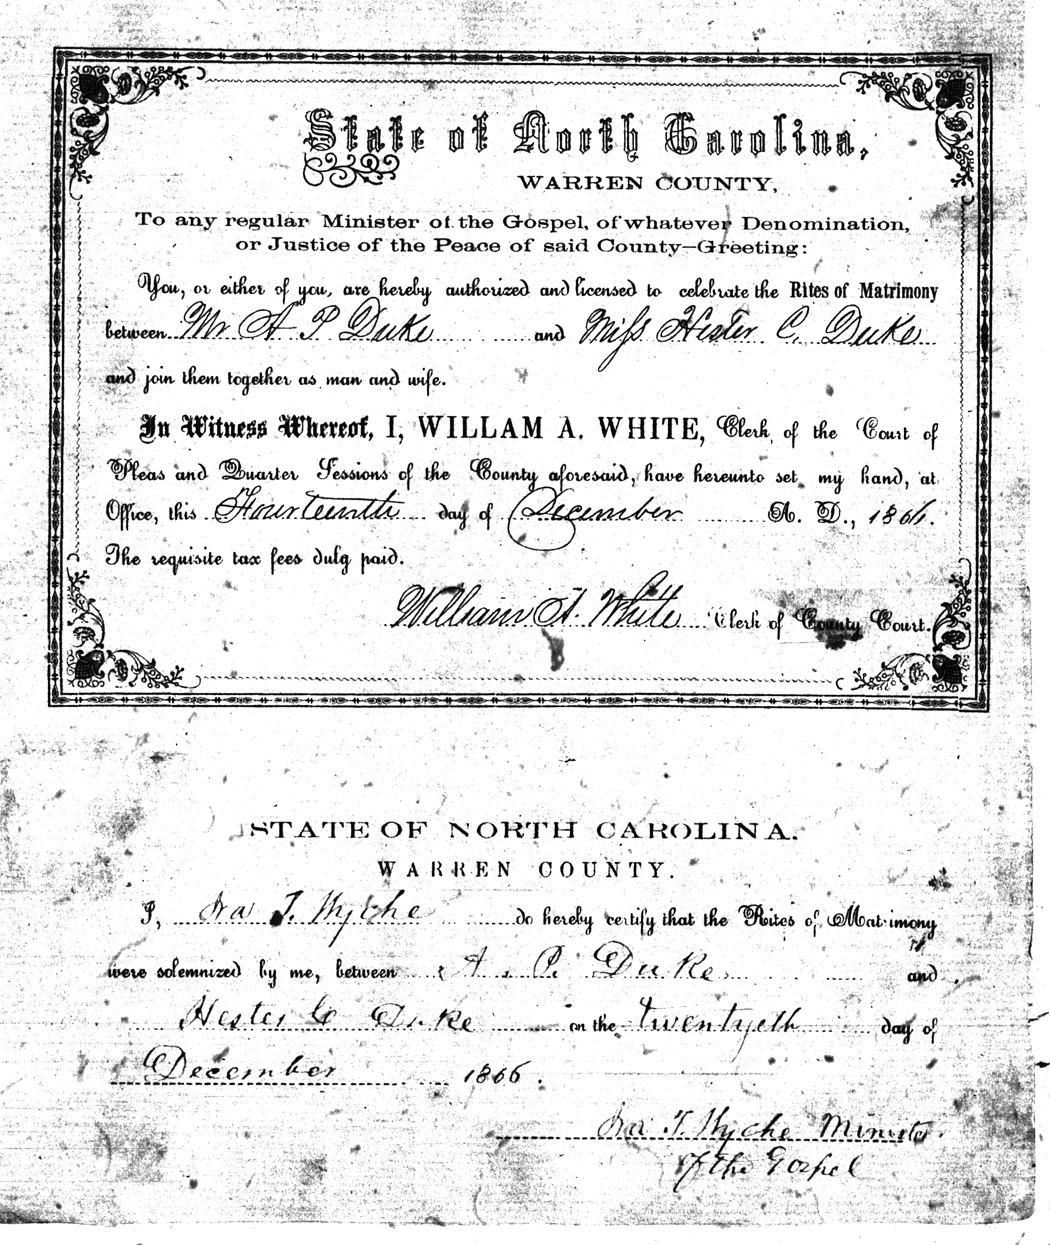 State of North Carolina,
WARREN COUNTY,
To any regular Minister of the Gospel, of whatever Denomination,
or Justice of the Peace of said County—Greeting:
You, or either of you, are hereby authorized and licensed to celebrate the Rites of Matrimony
between Mr A P Duke and Miss Hester C. Duke
and join them together as man and wife.
In Witness Whereof, I, WILLAM A. WHITE, Clerk of the Court of
Pleas and Quarter Sessions of the County aforesaid, have hereunto set my hand, at
Office, this Fourteenth day of December A. D., 1866.
The requisite tax fees dulg paid.
William A. White Clerk of County Court.
STATE OF NORTH CAROLINA.
WARREN COUNTY.
I, Ira T. Wyche do hereby certify that the Rites of Matrimony
were solemnized by me, between A. P. Duke and
Hester C Duke on the twentyeth day of
December 1866.
Ira T. Wyche Minister
of the Gospel